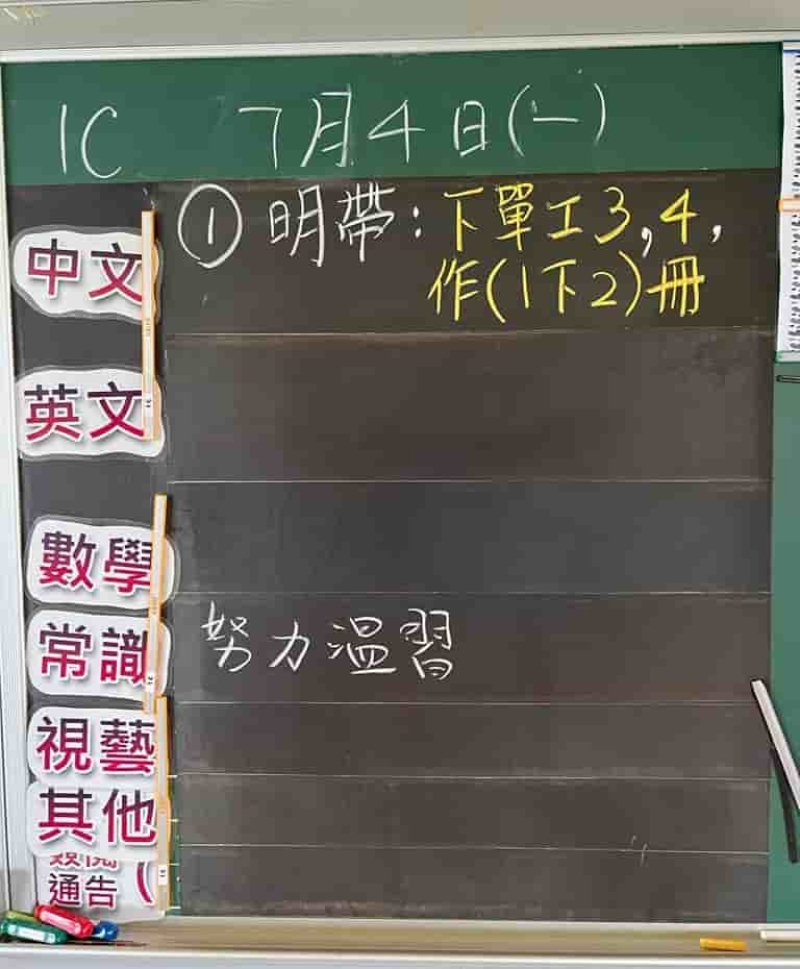 1C 7月4日(一)
中文 ① 明帶：下單工3,4,
作(1下2)冊
英文
數學
常識 努力溫習
視藝
其他
通告（